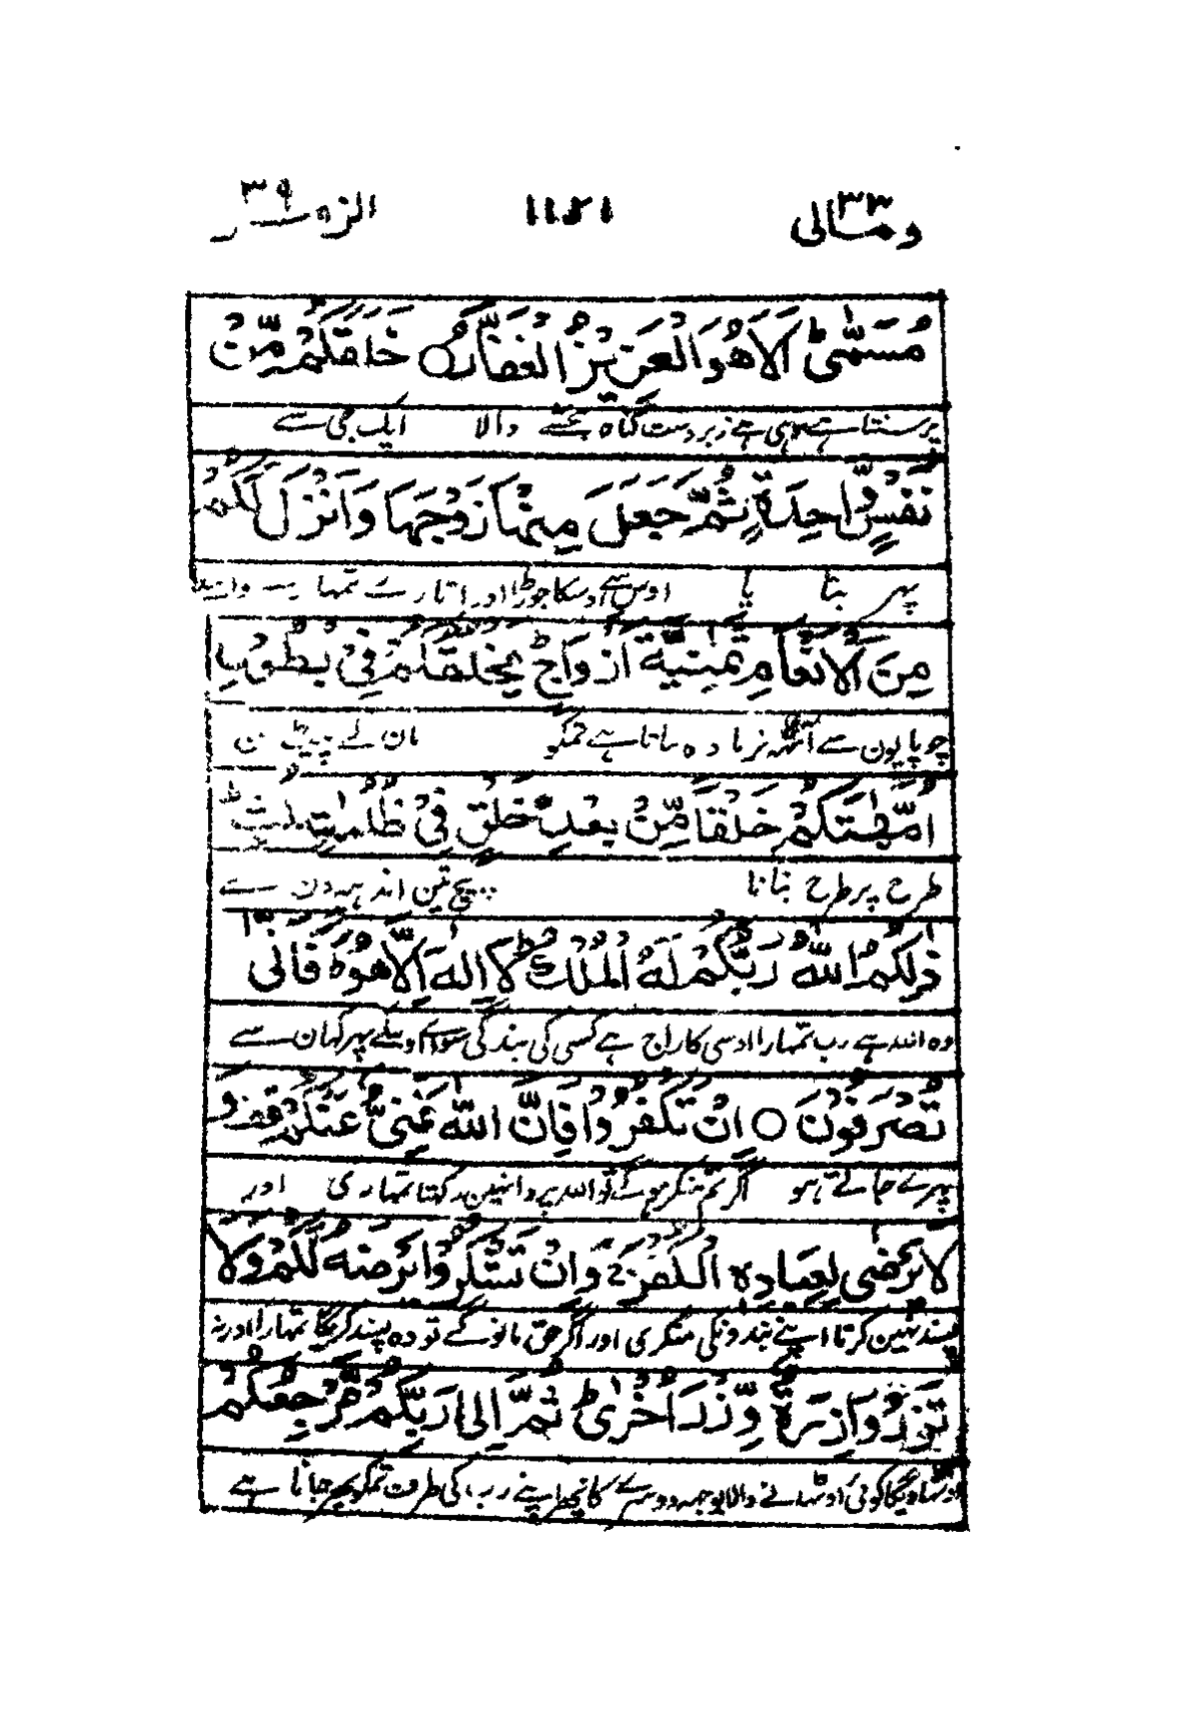 ومالی ۲۳ ۱۱۴۱ الزمر ۳۹
مُسَمًّىؕ اَلَا هُوَ الْعَزِیْزُ الْغَفَّارُ○ خَلَقَكُمْ مِّنْ
سنتا ہے وہی ہے زبردست گناہ بخشنے والا ایک جی سے
نَّفْسٍ وَّاحِدَةٍ ثُمَّ جَعَلَ مِنْهَا زَوْجَهَا وَاَنْزَلَ لَكُمْ
پہر بنا یا اوس سے اوسکا جوڑا اور اتارے تمہارے واسطے
مِنَ الْاَنْعَامِ ثَمٰنِیَةَ اَزْوَاجٍؕ یَخْلُقُكُمْ فِیْ بُطُوْنِ
چوپایون سے آٹھ نر مادہ بناتا ہے تمکو مان کے پیٹ مین
اُمَّهٰتِكُمْ خَلْقًا مِّنْۢ بَعْدِ خَلْقٍ فِیْ ظُلُمٰتٍ ثَلٰثٍؕ
طرح پر طرح بنانا بیچ تین اندہیرون کے
ذٰلِكُمُ اللّٰهُ رَبُّكُمْ لَهُ الْمُلْكُؕ لَاۤ اِلٰهَ اِلَّا هُوَۚ فَاَنّٰی
وہ اللہ ہے رب تمہارا اوسی کا راج ہے کسی کی بندگی سوائے اوسکے پہر کہان سے
تُصْرَفُوْنَ○ اِنْ تَكْفُرُوْا فَاِنَّ اللّٰهَ غَنِیٌّ عَنْكُمْ قف وَ
پہرے جاتے ہو اگر تم منکر ہوگے تو اللہ پروا نہین رکہتا تمہاری اور
لَا یَرْضٰی لِعِبَادِهِ الْكُفْرَۚ وَاِنْ تَشْكُرُوْا یَرْضَهُ لَكُمْؕ وَلَا
پسند نہین کرتا اپنے بندونکی منکری اور اگر حق مانوگے تو وہ پسند کریگا تمہارا اور نہ
تَزِرُ وَازِرَةٌ وِّزْرَ اُخْرٰیؕ ثُمَّ اِلٰی رَبِّكُمْ مَّرْجِعُكُمْ
اوٹھاویگا کوئی اوٹھانے والا بوجہہ دوسرے کا پہر اپنے رب کی طرف تمکو پہر جانا ہے